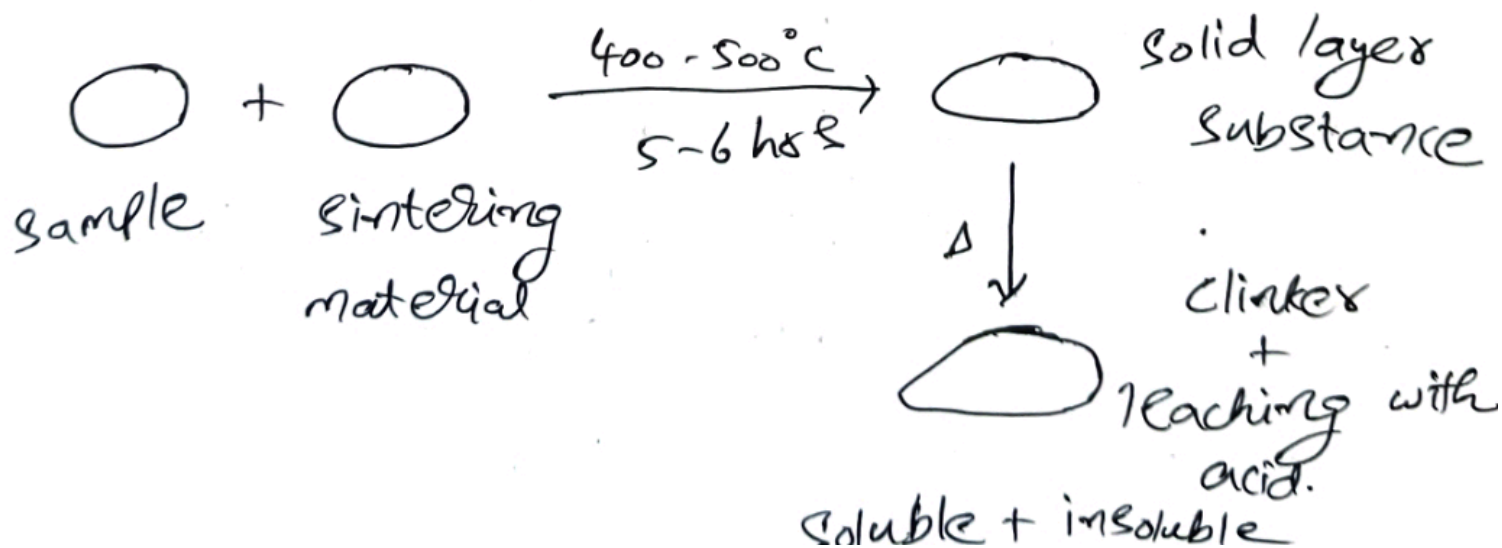 sample + sintering material
400 - 500°C
5-6 hrs
solid layer
substance
Δ
clinker
+
leaching with
acid.
soluble + insoluble